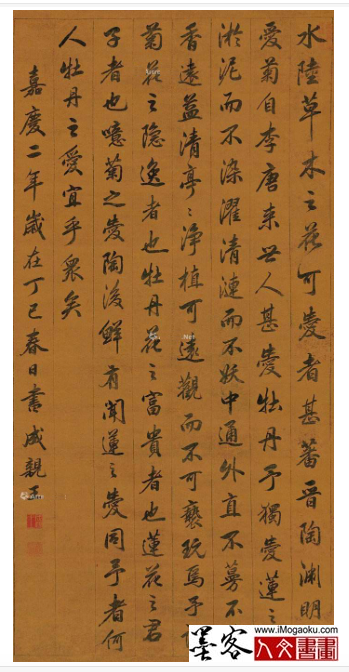 水陸草木之花可愛者甚蕃晋陶渊明
愛菊自李唐来世人甚愛牡丹予獨愛蓮之
淤泥而不染濯清漣而不妖中通外直不蔓不
香遠益清亭〻净植可遠觀而不可褻玩焉予
菊花之隐逸者也牡丹花之富貴者也蓮花之君
子者也噫菊之愛陶後鮮有聞蓮之愛同予者何
人牡丹之愛宜乎衆矣
嘉慶二年歲在丁巳春日書成親王
www.iMogaoku.com
墨客